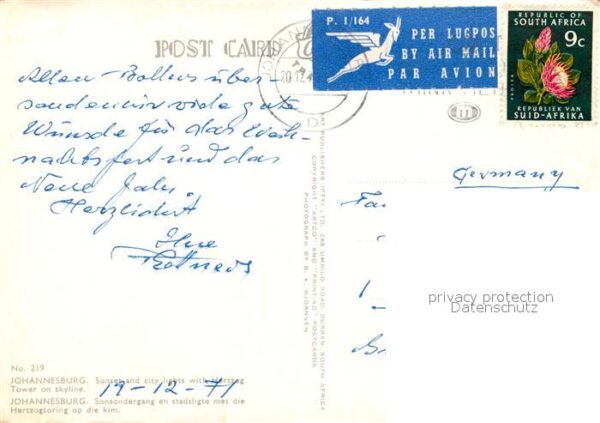 POST CARD
P. 1/164
PER LUGPOS
BY AIR MAIL
PAR AVION
REPUBLIC OF
SOUTH AFRICA
9c
PROTEA
REPUBLIEK VAN
SUID-AFRIKA
20.12.
D
Allen
über-
senden wir viele gute
Wünsche für das Weih-
nachtsfest und das
Neue Jahr!
Herzlichst
Ihre
Germany
ART PUBLISHERS (PTY.) LTD. 265 UMBILO ROAD DURBAN SOUTH AFRICA
COPYRIGHT "ARTCO" AND "PRINT-AD" POSTCARDS
PHOTOGRAPH BY B. K. BJORNSEN
privacy protection
Datenschutz
No. 219
JOHANNESBURG. Sunset and city lights with Hertzog
Tower on skyline.
19-12-71
JOHANNESBURG. Sonsondergang en stadsligte met die
Hertzogtoring op die kim.